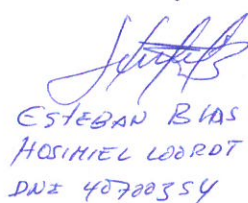 ESTEBAN BLAS
HOSIMIEL WORDT
DNI 40700354